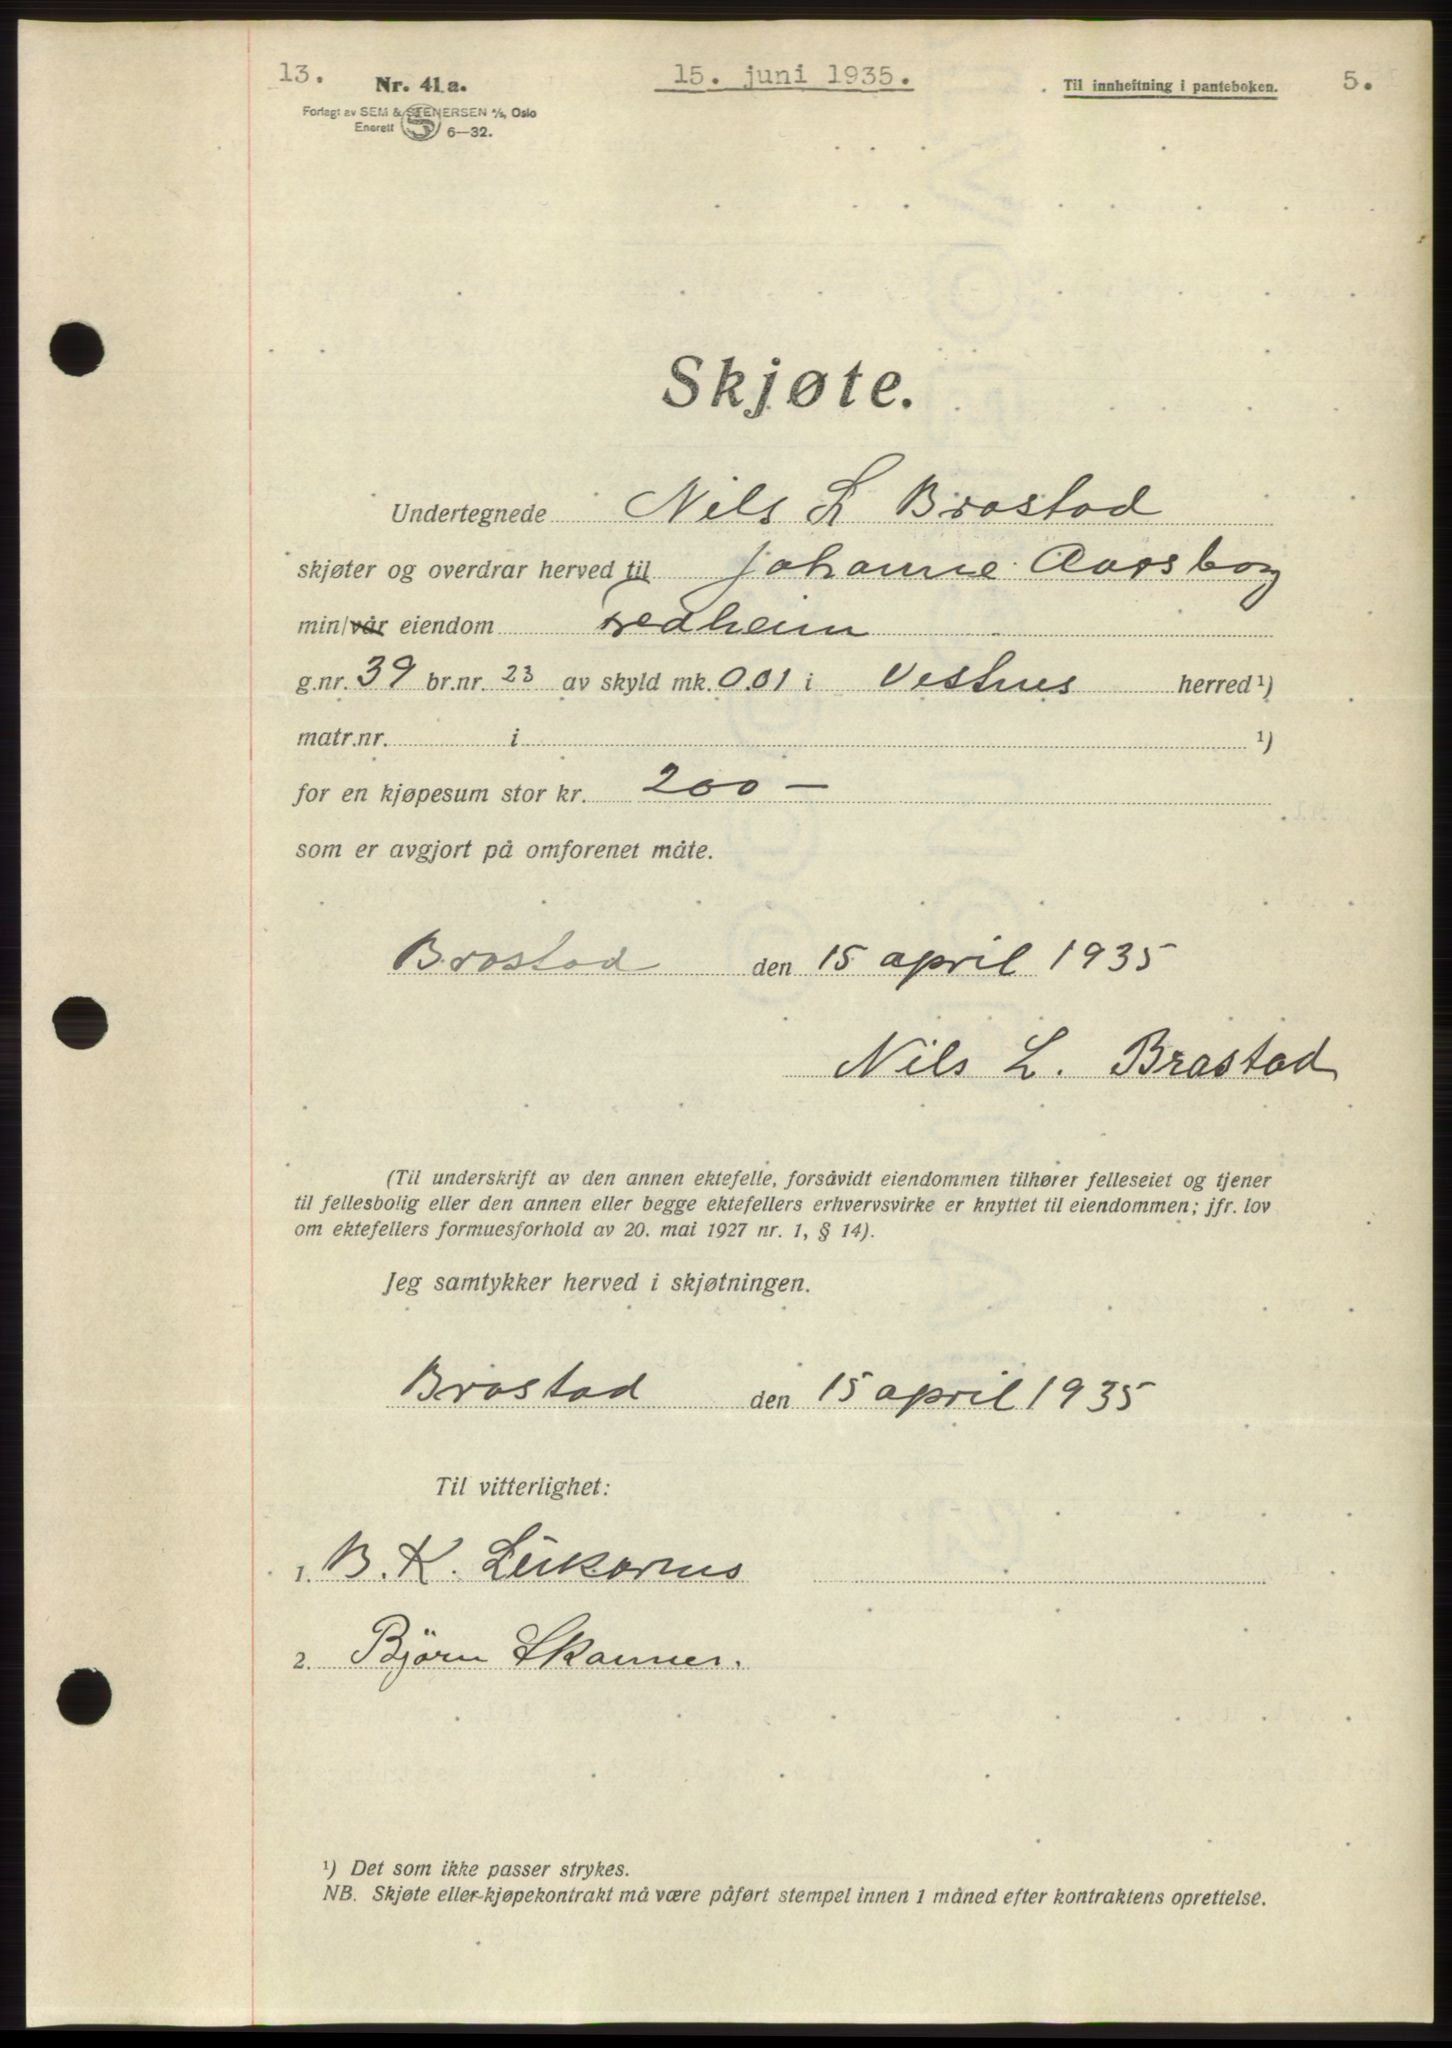 13. Nr. 41a. 15. juni 1935. Til innheftning i panteboken. 5.
Forlagt av SEM & STENERSEN A/S, Oslo
Enerett S 6—32.
Skjøte.
Undertegnede Nils L Brastad
skjøter og overdrar herved til Johanne Aarsbog
min/vår eiendom Fredheim
g.nr. 39 br.nr. 23 av skyld mk. 0.01 i Vestnes herred ¹)
matr.nr. i ¹)
for en kjøpesum stor kr. 200 —
som er avgjort på omforenet måte.
Brastad den 15 april 1935
Nils L. Brastad
(Til underskrift av den annen ektefelle, forsåvidt eiendommen tilhører felleseiet og tjener
til fellesbolig eller den annen eller begge ektefellers erhvervsvirke er knyttet til eiendommen; jfr. lov
om ektefellers formuesforhold av 20. mai 1927 nr. 1, § 14).
Jeg samtykker herved i skjøtningen.
Brastad den 15 april 1935
Til vitterlighet:
1. B. K. Leikarnes
2. Björn Skammer.
¹) Det som ikke passer strykes.
NB. Skjøte eller kjøpekontrakt må være påført stempel innen 1 måned efter kontraktens oprettelse.